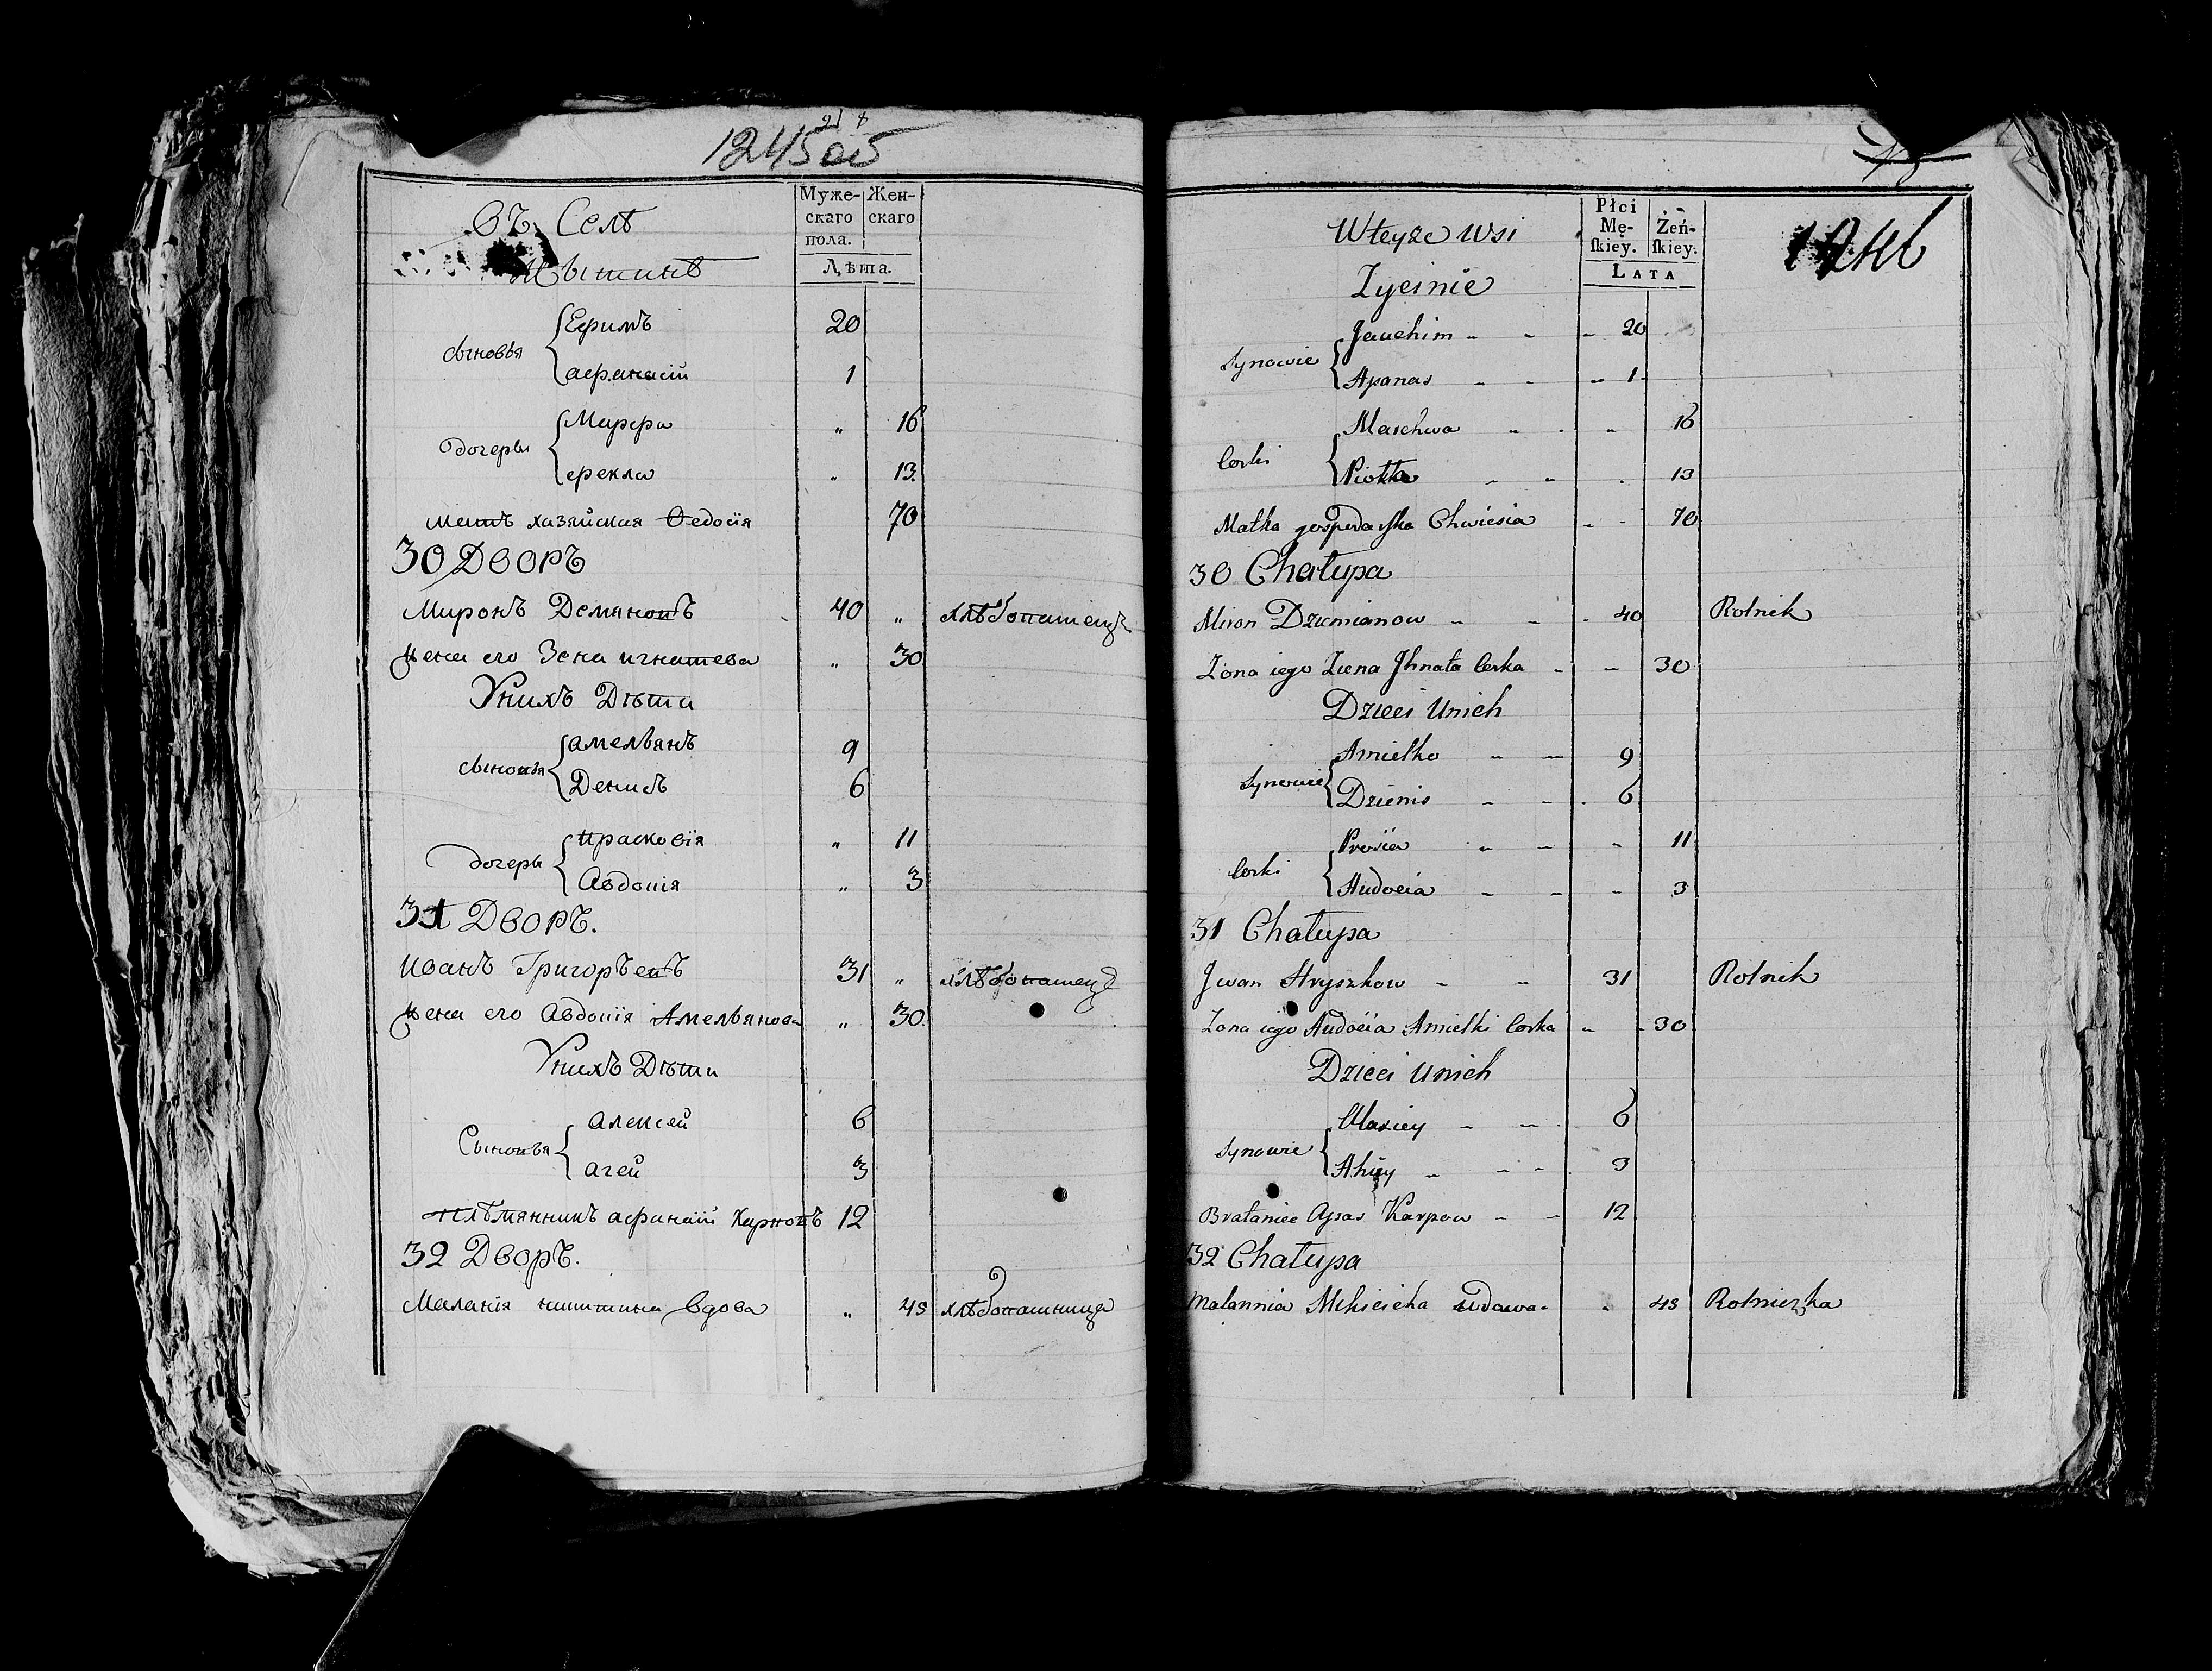 1245об
Муже-
скаго
пола.
Жен-
скаго
Лѣта.
Въ Селѣ
Жытинѣ
сыновья
Ефимъ 20
афанасiй 1
дочерьи
Марфа " 16
фекла " 13.
мать хазяйская Федосiя 70
30 Дворъ
Миронъ Демяновъ 40 " хлѣбопашецъ
жена его Зена игнатева " 30
Унихъ Дѣти
сыновья
амельянъ 9
Денисъ 6
дочерьи
прасковiя " 11
Авдотiя " 3
31 Дворъ.
Иванъ Григорьевъ 31 " хлѣбопашецъ
жена его Авдотiя Амельянова " 30.
Унихъ Дѣти
Сыновья
Алексей 6
агей 3
племянникъ афанасiй Карповъ 12
32 Дворъ.
Маланiя никитина вдова " 48 хлѣбопашница
Płci
Mę-
skiey.
Żeń-
skiey.
LATA
Wteyże Wsi
Zycinie
1246
Synowie
Jauchim - - - 20
Apanas - - - 1
Corki
Marchwa - - - 16
Piokła - - - 13
Matka gospodarska Chwiesia - - 70
30 Chałupa
Miron Dziemianow - - - 40 Rolnik
Zona iego Ziena Jhnata Corka - - 30
Dzieci Unich
Synowie
Amielko - - 9
Dzienis - - - 6
Corki
Prosia - - - 11
Audocia - - - 3
31 Chałupa
Jwan Hryszkow - - 31 Rolnik
Zona iego Audocia Amielki Corka - - 30
Dzieci Unich
Synowie
Alaxiey - - 6
Ahiey - - - 3
Brataniec Apas Karpow - - 12
32 Chałupa
Malannia Mikicicha Udawa - - 48 Rolniczka